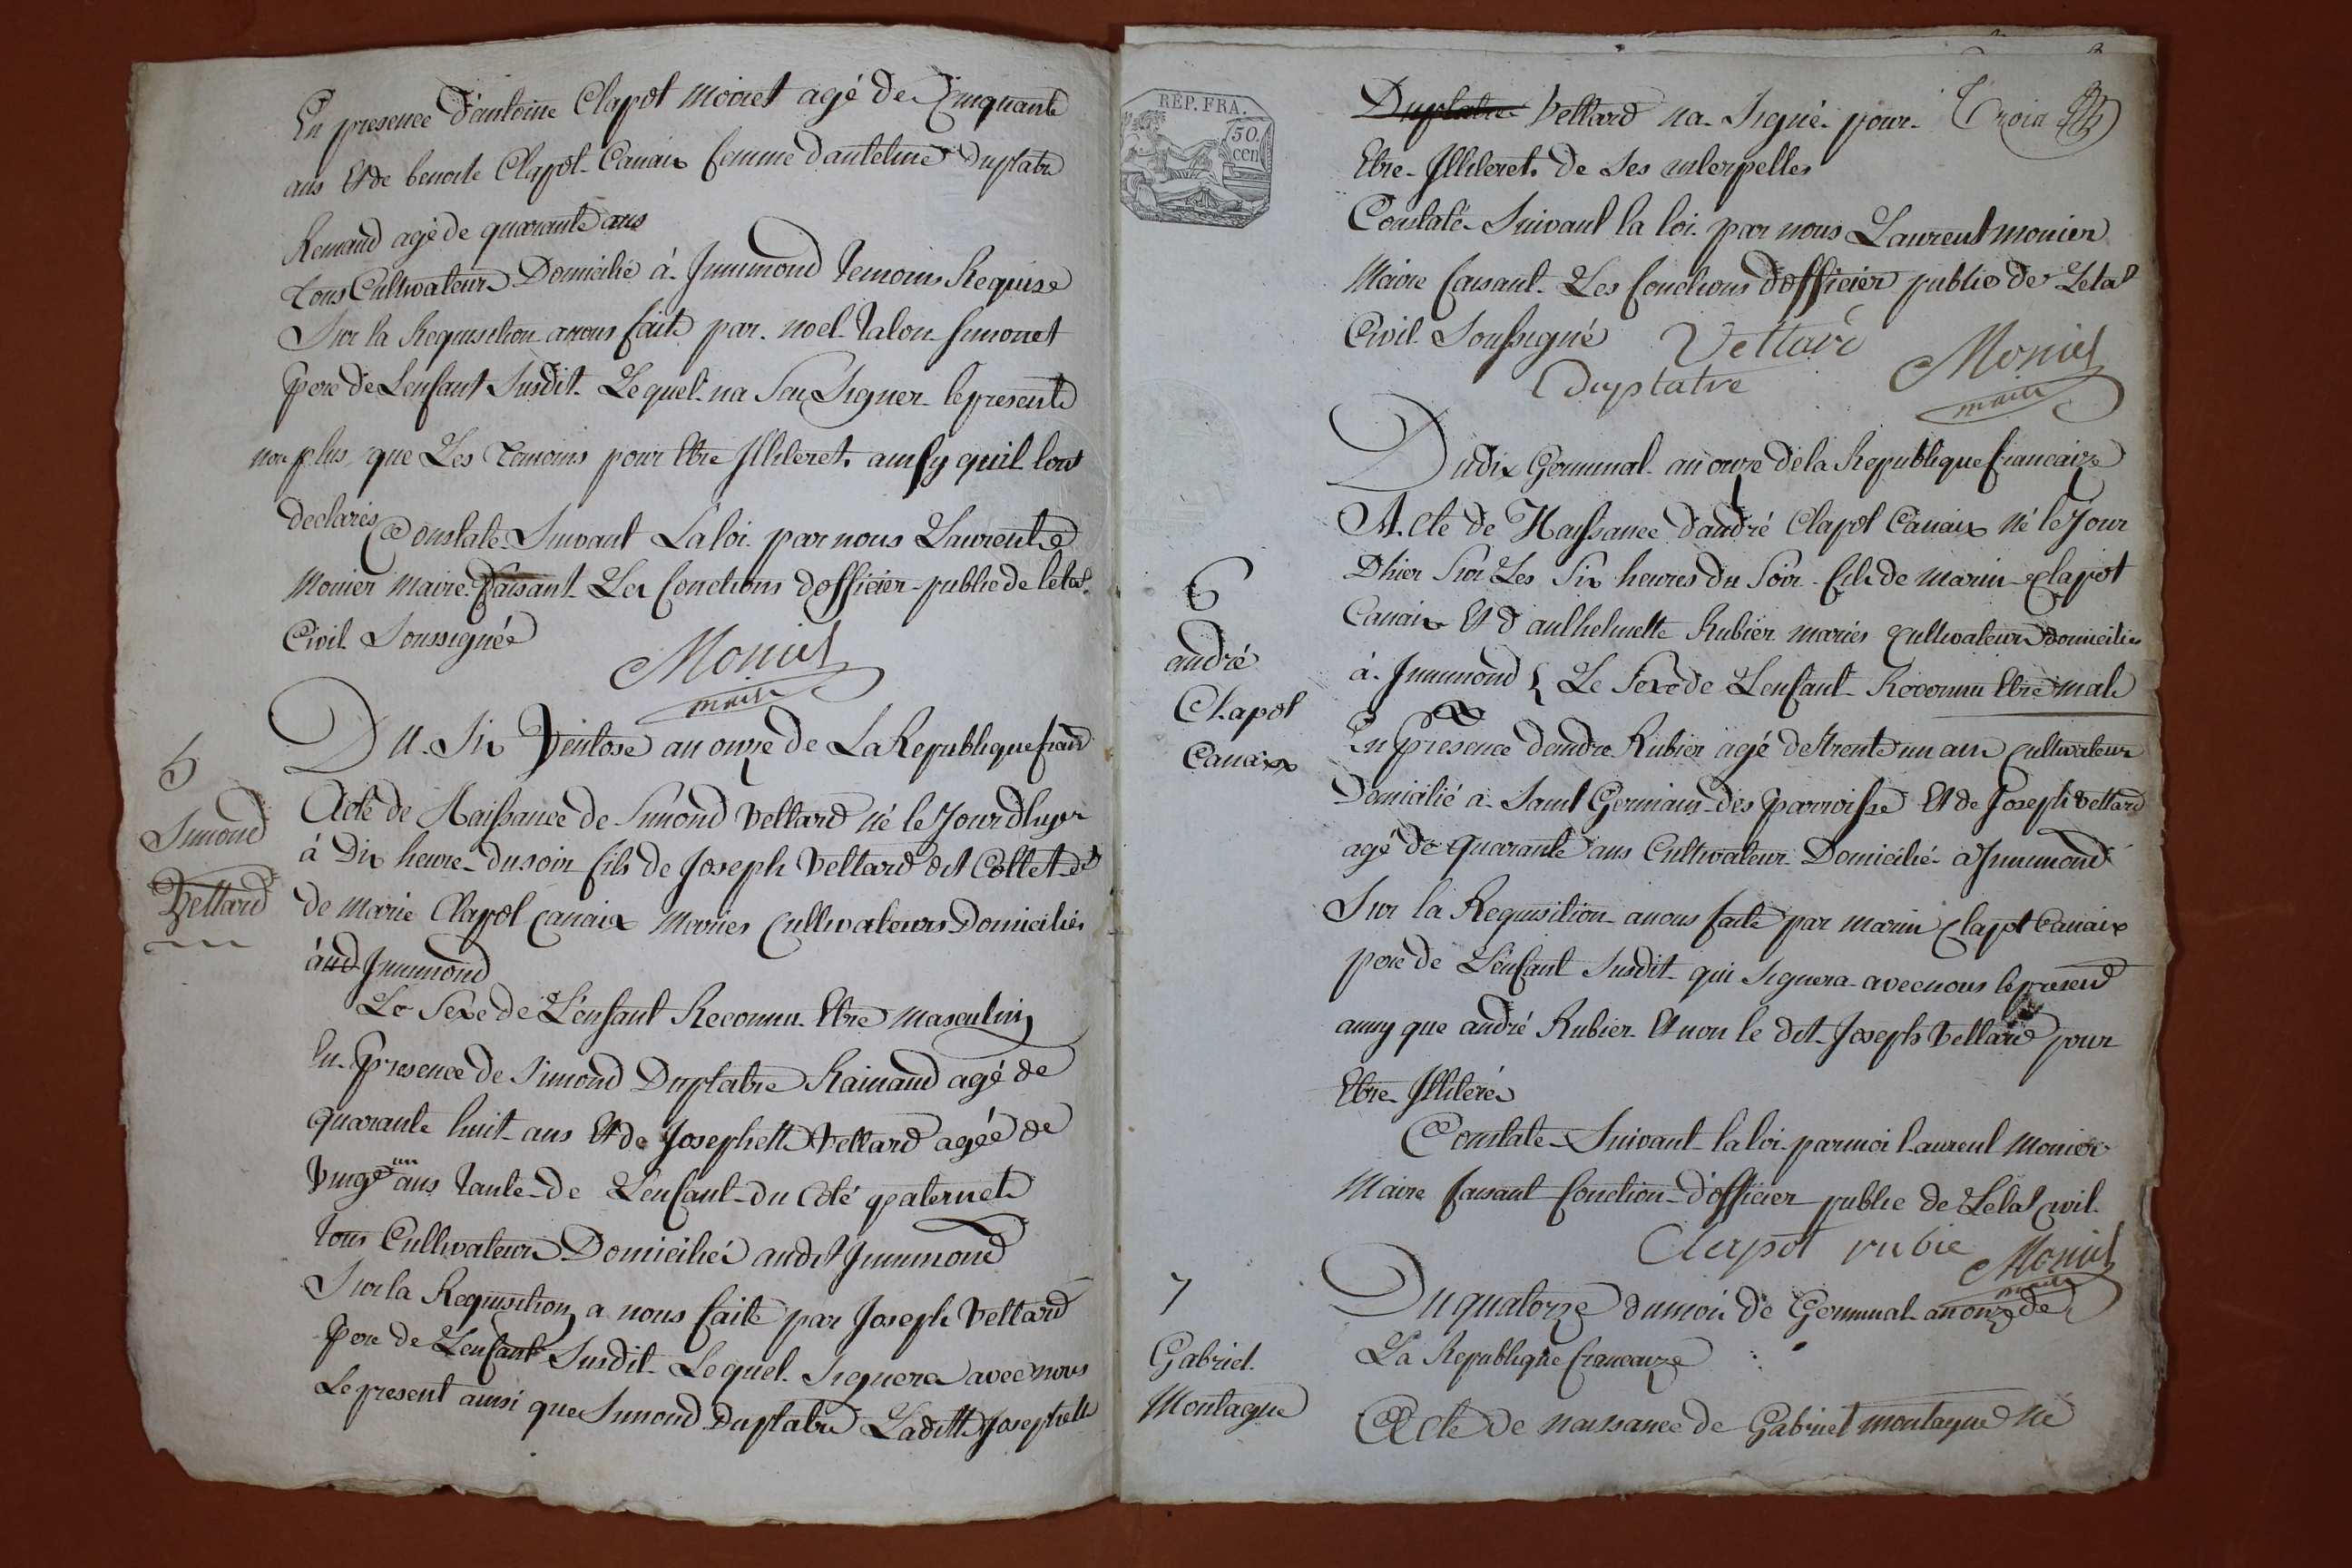 En presence d'antoine Clapot Moiret agé de Cinquante
ans Et de benoite Clapot Canaix femme d'antelme Duplatre
Renaud agé de quarante ans
tous Cultivateurs Domicilié à Innimond temoins Requise
Sur la Requisition a nous faite par noel Talon Simonet
pere de Lenfant Susdit Lequel na Seu Signer le presente
non plus que Les temoins pour Etre Illileret ainsy quil lont
declarés
Constaté Suivant La loi par nous Laurent
Monier Maire faisant Les fonctions dofficier public de letat
Civil Soussigné
Monier
maire
5
Simond
Vellard
Du Six Ventose an onze de La Republique franc
Acte de Naissance de Simond Vellard né le Jour dhyer
à Dix heure du soir fils de Joseph Vellard dit Collet et
de marie Clapot Canaix Mariés Cultivateurs Domiciliés
aud Innimond
Le Sexe de Lenfant Reconnu Etre masculin
En Presence de Simond Duplatre Rainaud agé de
quarante huit ans Et de Josephette Vellard agée de
Vingt un ans tante de Lenfant du Coté paternet
tous Cultivateurs Domicilié audit Innimond
Sur la Requisition a nous faite par Joseph Vellard
pere de Lenfant Susdit Lequel Signera avec nous
Le present ainsi que Simond Duplatre Ladite Josephette
REP. FRA.
50.
cen
Duplatre Vellard na Signé pour
Trois
Etre Illileret de Ses interpelles
Constaté Suivant la loi par nous Laurent monier
Maire faisant Les fonctions d'officier public de Letat
Civil Soussigné
Vettard
Duplatre
Monier
maire
Du dix Germinal an onze de la Republique francaize
6
andré
Clapot
Canaix
Acte de Naissance d'andré Clapot Canaix né le Jour
Dhier Sur Les Six heures du Soir fils de marin Clapot
Canaix Et d'anthelmette Rubier mariés cultivateurs domicilies
à Innimond Le Sexe de Lenfant Reconnu Etre male
En Presence dandre Rubier agé de trente un ans cultivateur
Domicilié a Saint Germain des parroisse Et de Joseph Vettard
agé de quarante ans Cultivateur Domicilié a Innimond
Sur la Requisition a nous faite par marin Clapot Canaix
pere de L'enfant Susdit qui signera avec nous le present
ainsy que andré Rubier Et non le dit Joseph Vellard pour
Etre Illileré
Constaté Suivant la loi par moi Laurent Monier
Maire faisant fonction d'officier public de Letat Civil
Clapot rubie Monier
maire
7
Gabriel
Montagne
Du quatorze du mois de Germinal an onze de
La Republique francaize
Acte de naissance de Gabriel montagne né